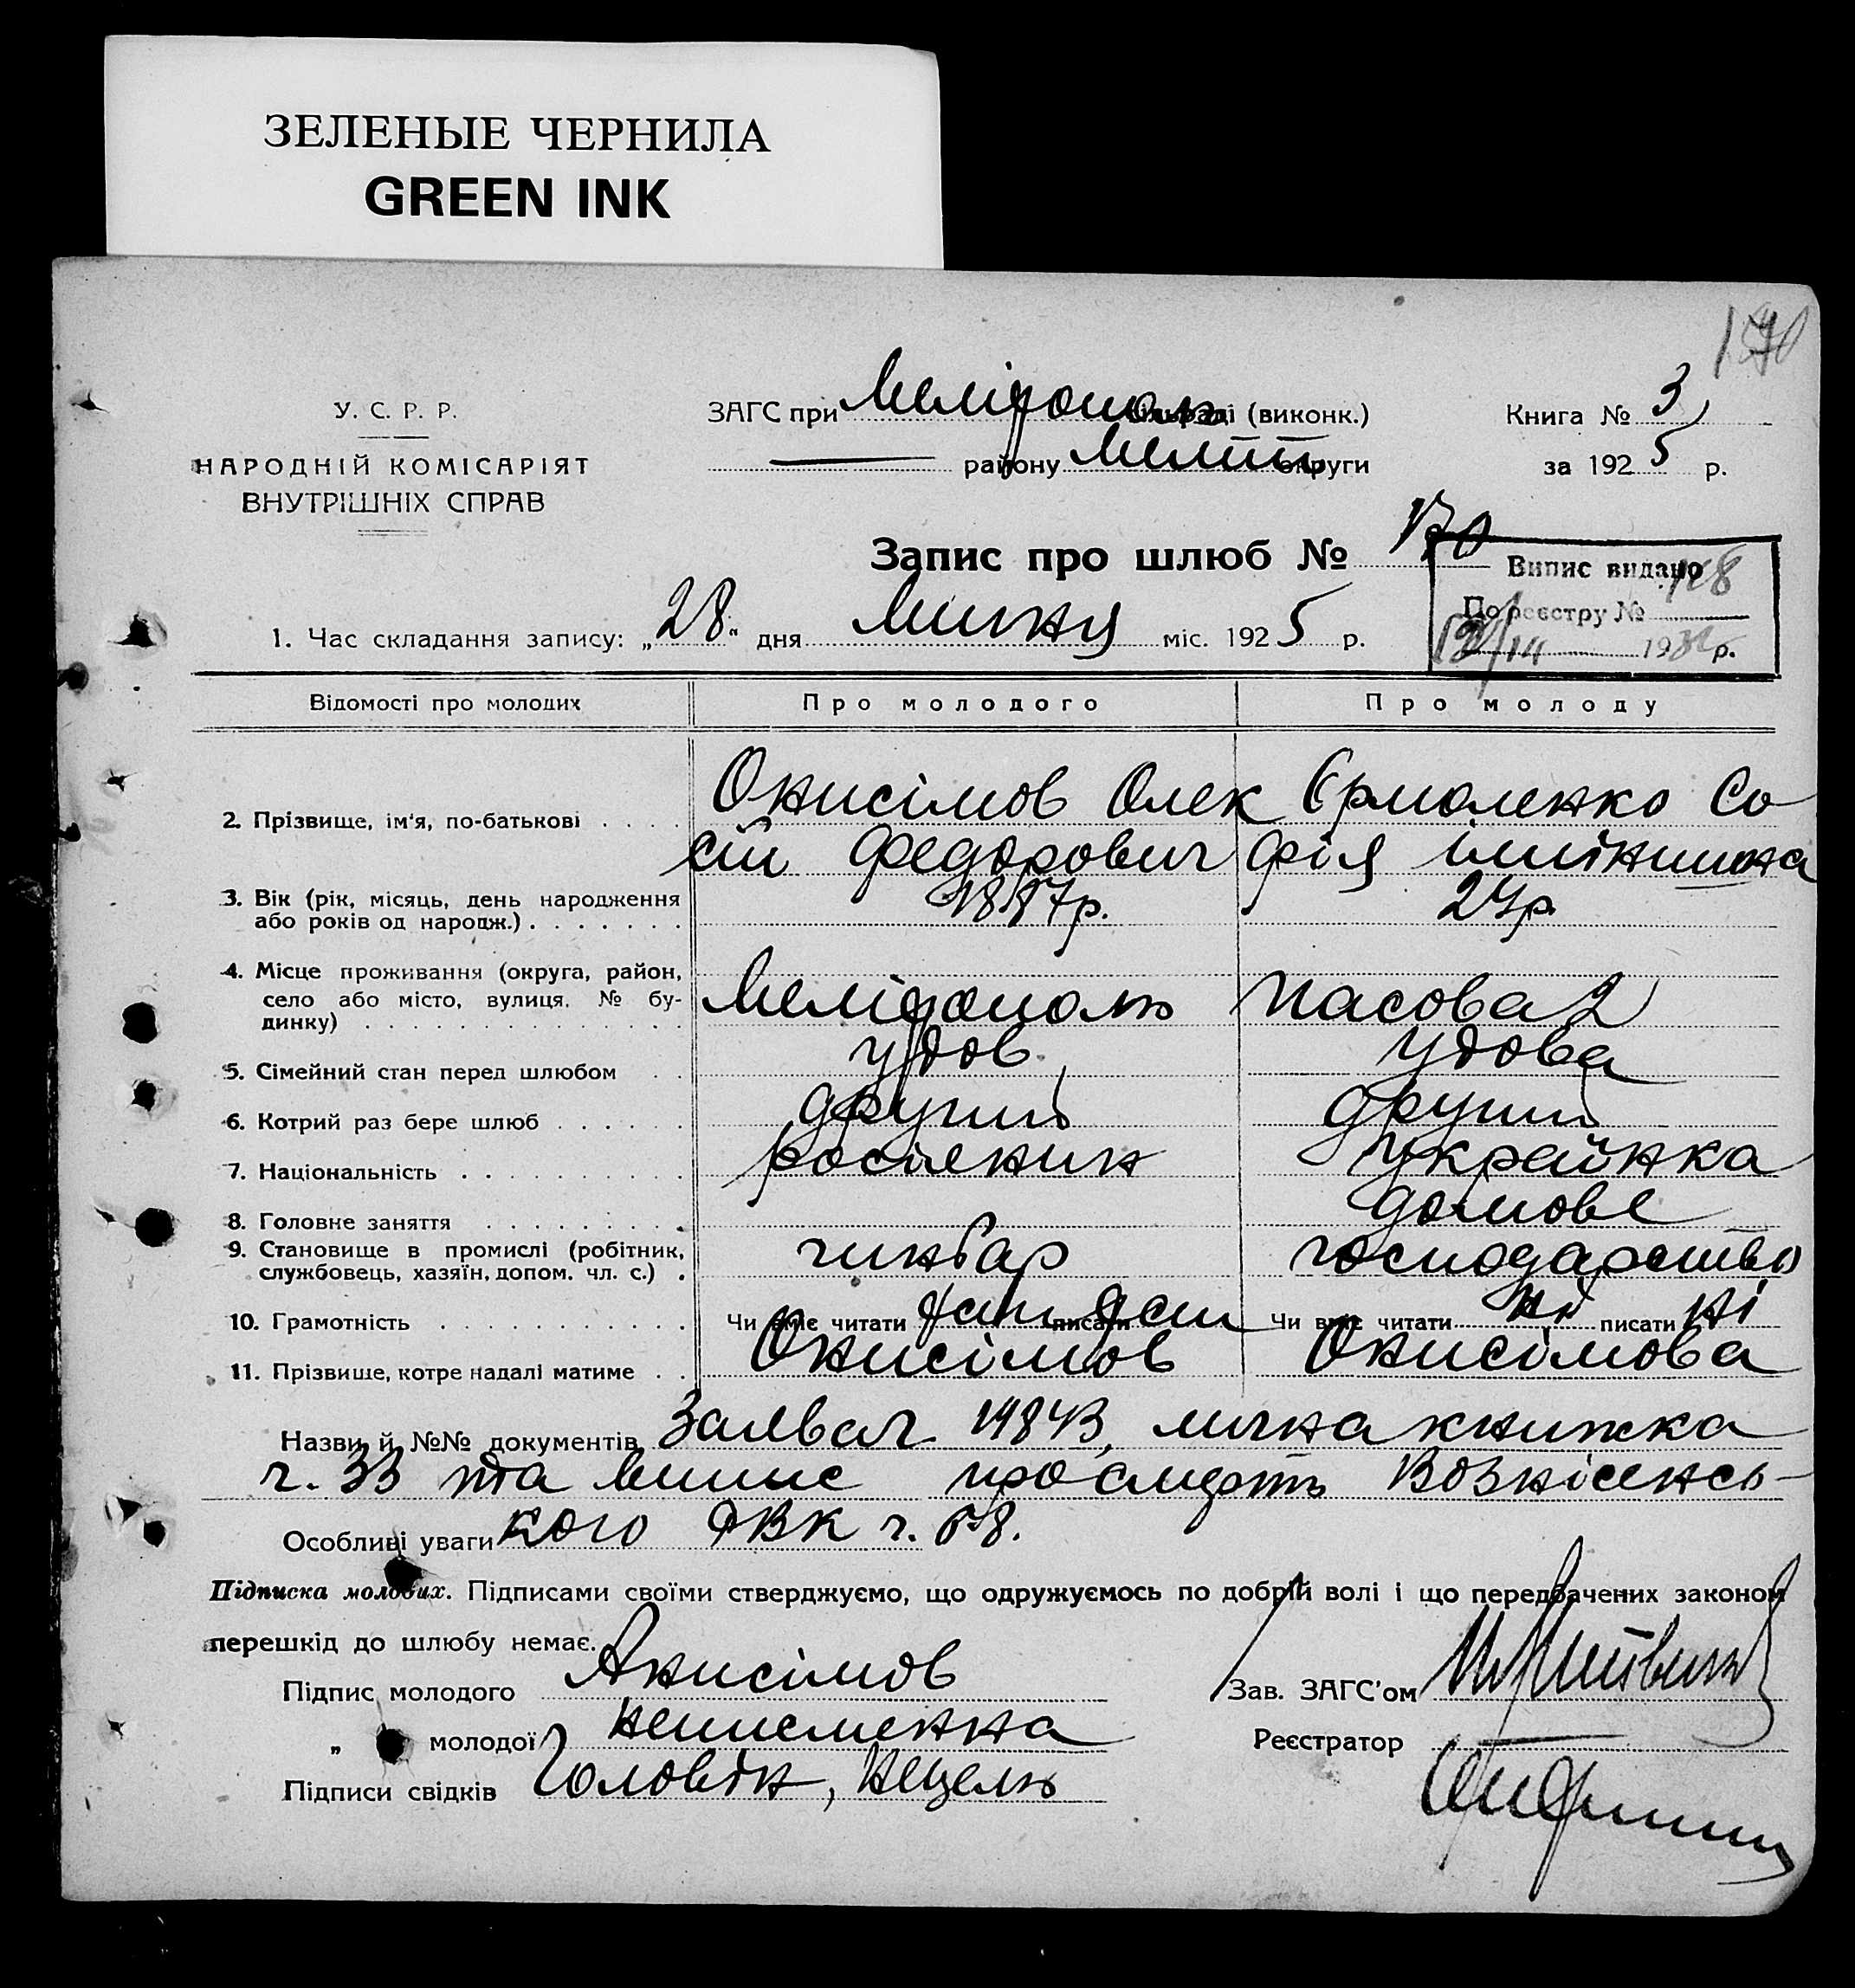 ЗЕЛЕНЫЕ ЧЕРНИЛА
GREEN INK
170
У. С. Р. Р.
НАРОДНІЙ КОМІСАРІЯТ
ВНУТРІШНІХ СПРАВ
ЗАГС при Мелітополь сільраді (виконк.)
— району Меліт округи
Книга № 3
за 1925 р.
Запис про шлюб № 170
Випис видано
По реєстру № 168
193 р.
1. Час складання запису: „28" дня Липня міс. 1925 р.
Відомості про молодих Про молодого Про молоду
2. Прізвище, ім'я, по-батькові Онисімов Олек Єрмоленко Со
сій Федорович фія
3. Вік (рік, місяць, день народження або років од народж.) 1887р. 27р.
4. Місце проживання (округа, район, село або місто, вулиця, № будинку) Мелітополь Пасова 2
5. Сімейний стан перед шлюбом удов. удова
6. Котрий раз бере шлюб другий другий
7. Національність росіянин українка
8. Головне заняття домове
9. Становище в промислі (робітник, службовець, хазяїн, допом. чл. с.) чинбар господарство
10. Грамотність Чи вміє читати так писати так Чи вміє читати ні писати ні
11. Прізвище, котре надалі матиме Онисімов Онисімова
Назви й №№ документів книжка
ч. 33 та випис про смерть Вознісенсь-
Особливі уваги кого РВК ч. 58.
Підписка молодих. Підписами своїми стверджуємо, що одружуємось по добрій волі і що передбачених законом
перешкід до шлюбу немає.
Підпис молодого Анисімов
Зав. ЗАГС'ом
„ молодої неписьменна
Реєстратор
Підписи свідків Головін,